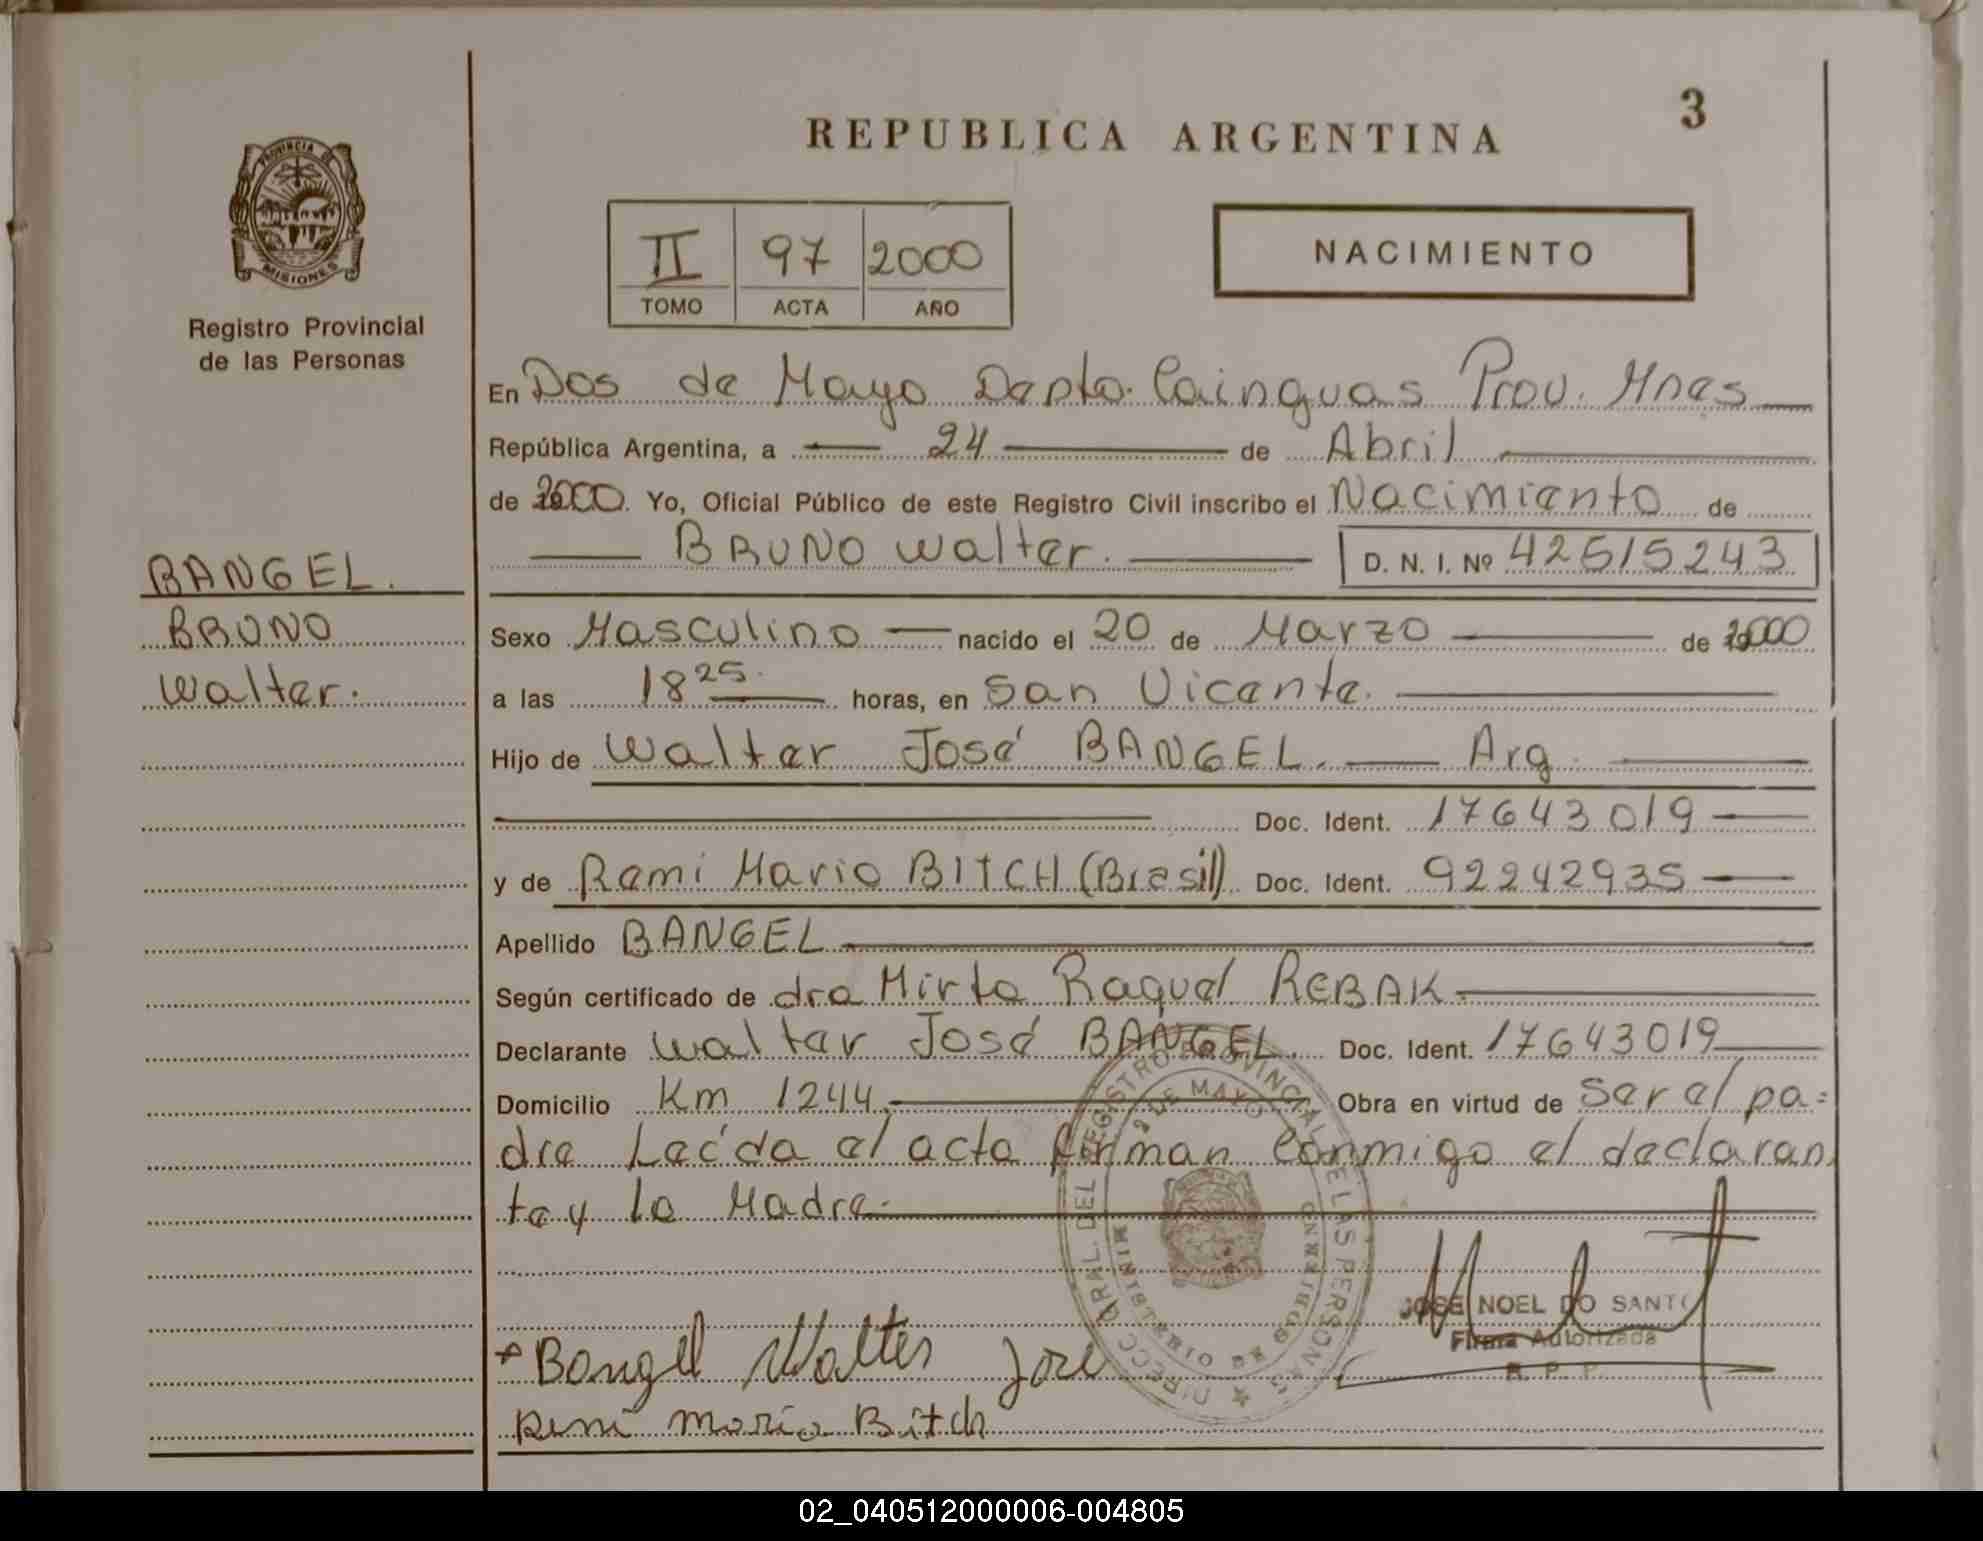 3
REPUBLICA ARGENTINA
PROVINCIA DE
MISIONES
Registro Provincial
de las Personas
II 97 2000
TOMO ACTA AÑO
NACIMIENTO
En Dos de Mayo Depto. Cainguas Prov. Mnes
República Argentina, a 24 de Abril
de 2000. Yo, Oficial Público de este Registro Civil inscribo el Nacimiento de
BRUNO Walter. D. N. I. Nº 42515243
BANGEL.
BRUNO
Walter.
Sexo Masculino nacido el 20 de Marzo de 2000
a las 18 25. horas, en San Vicente.
Hijo de Walter José BANGEL. Arg.
Doc. Ident. 17643019
y de Remi Maria BITCH (Brasil) Doc. Ident. 92242935
Apellido BANGEL
Según certificado de dra Mirta Raquel REBAK
Declarante Walter José BANGEL. Doc. Ident. 17643019
Domicilio Km 1244. Obra en virtud de Ser el pa=
dre Leída el acta firman Conmigo el declaran
te y la Madre.
DIRECC. GRAL. DEL REGISTRO PROVINCIAL DE LAS PERSONAS
2 DE MAYO
MINISTERIO DE GOBIERNO
JOSE NOEL DO SANTO
Firma Autorizada
R. P. P.
Bangel Walter José
Remi Maria Bitch
02_040512000006-004805